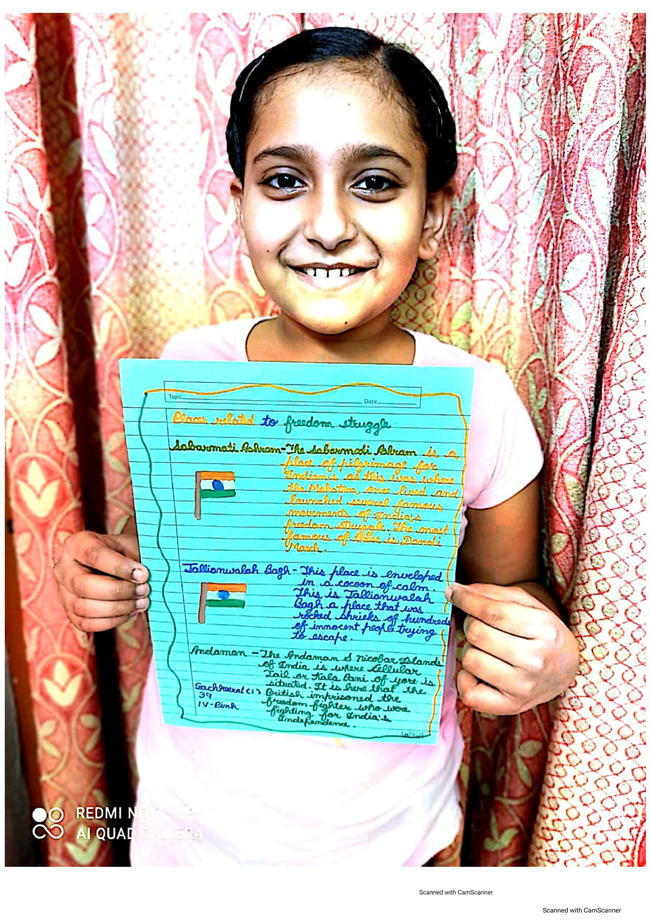 Topic Date
Places related to freedom struggle
Sabarmati Ashram-The sabarmati Ashram is a
place of pilgrimage for
Indian's as this was where
the Mahatma once lived and
launched several famous
movements of India's
freedom struggle. The most
famous of these is Dandi
March.
Jallianwalah Bagh - This place is enveloped
in a cocoon of calm
This is Jallianwalah
Bagh a place that was
rocked shrieks of hundreds
of innocent people trying
to escape.
Andaman - The Andaman & nicobar Islands
of India is where Cellular
Jail or Kala Pani of yore is
situated. It is here that the
British imprisoned the
freedom fighter who was
fighting for India's
Independence.
39
IV-Pink
REDMI
AI QUAD CAMERA
Scanned with CamScanner
Scanned with CamScanner